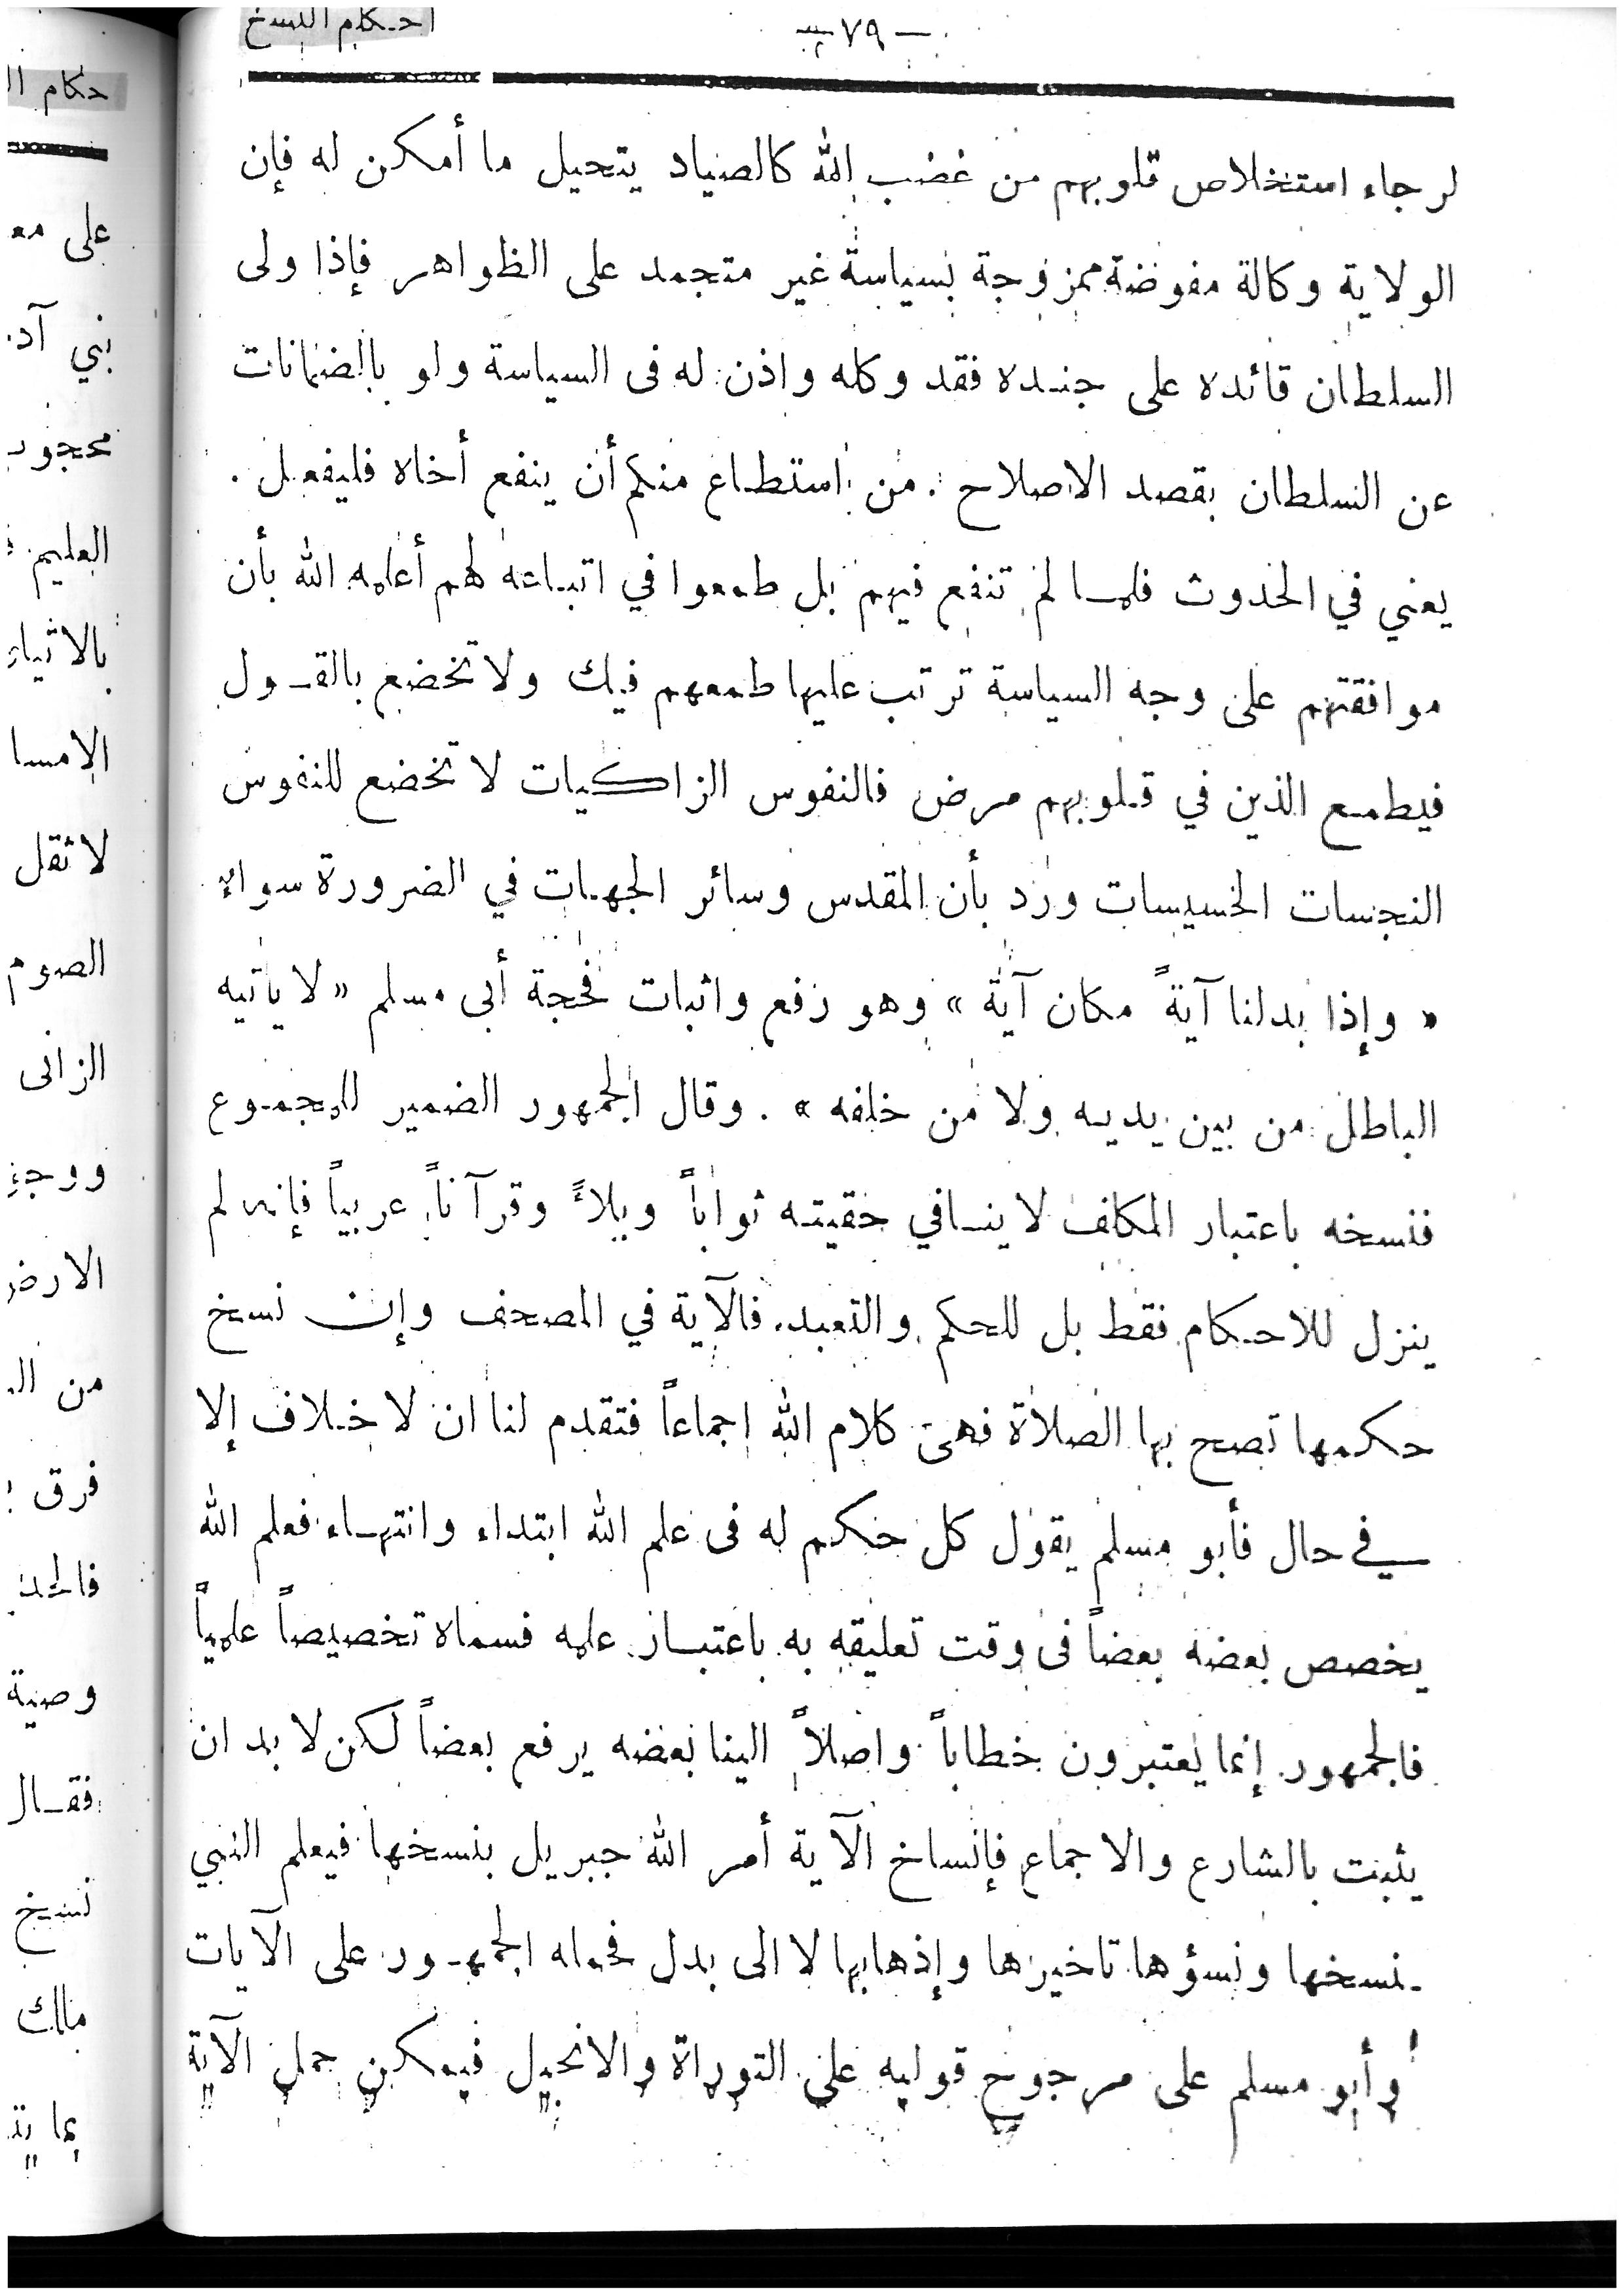 احكام النسخ
— ٧٩ —
لرجاء استخلاص قلوبهم من غضب الله كالصياد يتحيل ما أمكن له فإن
الولاية وكالة مفوضة ممزوجة بسياسة غير متجمد على الظواهر فإذا ولى
السلطان قائده على جنده فقد وكله واذن له فى السياسة ولو بالضمانات
عن السلطان بقصد الاصلاح . من استطاع منكم أن ينفع أخاه فليفعل .
يعني في الحدوث فلما لم تنفع فيهم بل طمعوا في اتباعه لهم أعلمه الله بأن
موافقتهم على وجه السياسة ترتب عليها طمعهم فيك ولا تخضع بالقول
فيطمع الذين في قلوبهم مرض فالنفوس الزاكيات لا تخضع للنفوس
النجسات الخسيسات ورد بأن المقدس وسائر الجهات في الضرورة سواء
« وإذا بدلنا آيةً مكان آية » وهو رفع واثبات فحجة أبى مسلم « لا ياتيه
الباطل من بين يديه ولا من خلفه » . وقال الجمهور الضمير للمجموع
فنسخه باعتبار المكلف لا ينافي حقيته ثواباً وبلاءً وقرآناً عربياً فإنه لم
ينزل للاحكام فقط بل للحكم والتعبد . فالآية في المصحف وإن نسخ
حكمها تصح بها الصلاة فهى كلام الله اجماعاً فتقدم لنا ان لا خلاف إلا
في حال فأبو مسلم يقول كل حكم له فى علم الله ابتداء وانتهاء فعلم الله
يخصص بعضه بعضاً فى وقت تعليقه به باعتبار علمه فسماه تخصيصاً علمياً
فالجمهور إنما يعتبرون خطاباً واصلاً الينا بعضه يرفع بعضاً لكن لا بد ان
يثبت بالشارع والاجماع فإنساخ الآية أمر الله جبريل بنسخها فيعلم النبي
نسخها ونسؤها تاخيرها وإذهابها لا الى بدل فحمله الجمهور على الآيات
وأبو مسلم على مرجوح قوليه على التوراة والانجيل فيمكن حمل الآية
حكام ال
على مع
بني آد
محجوب
العليم
بالاثياء
الامسا
لا ثقل
الصوم
الزانى
ووجز
الارض
من ال
فرق
فالحد
وصية
فقال
نسخ
مالك
بما يتد